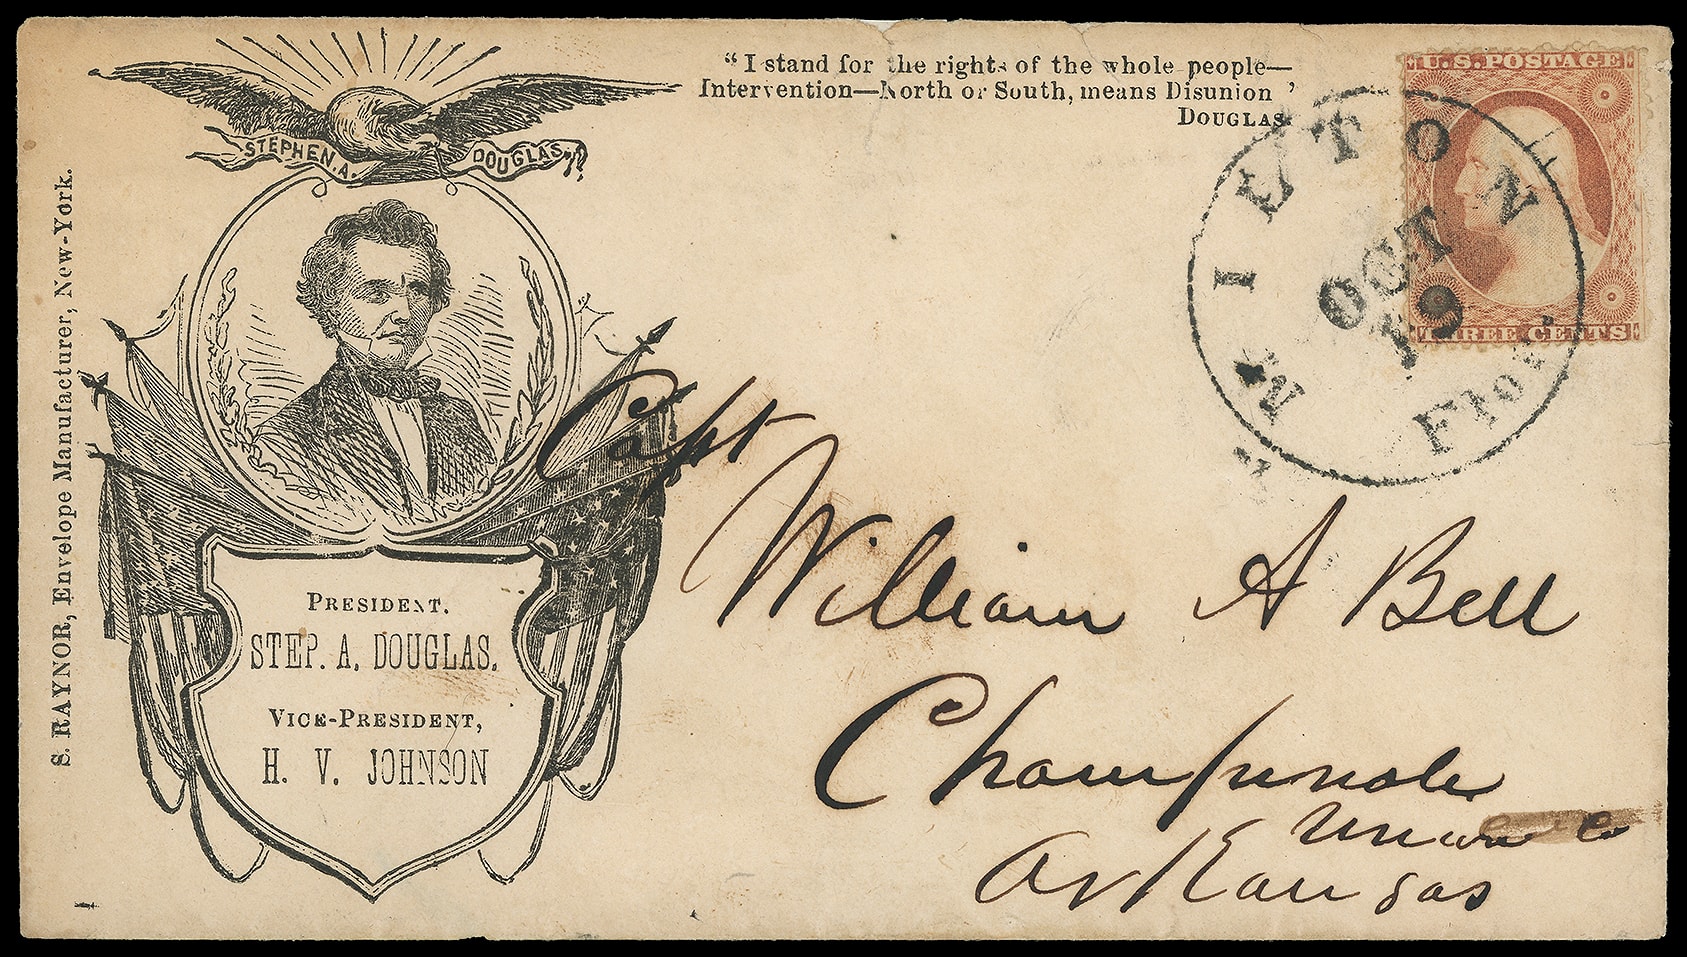 STEPHEN. A. DOUGLAS,
"I stand for the rights of the whole people—
Intervention—North or South, means Disunion '
DOUGLAS.
U.S. POSTAGE
THREE CENTS
MILTON
OCT
19
Flor.
S. RAYNOR, Envelope Manufacturer, New-York.
PRESIDENT.
STEP. A. DOUGLAS.
VICE-PRESIDENT,
H. V. JOHNSON
Capt
William A Bell
Champagnole
Union Co
Arkansas